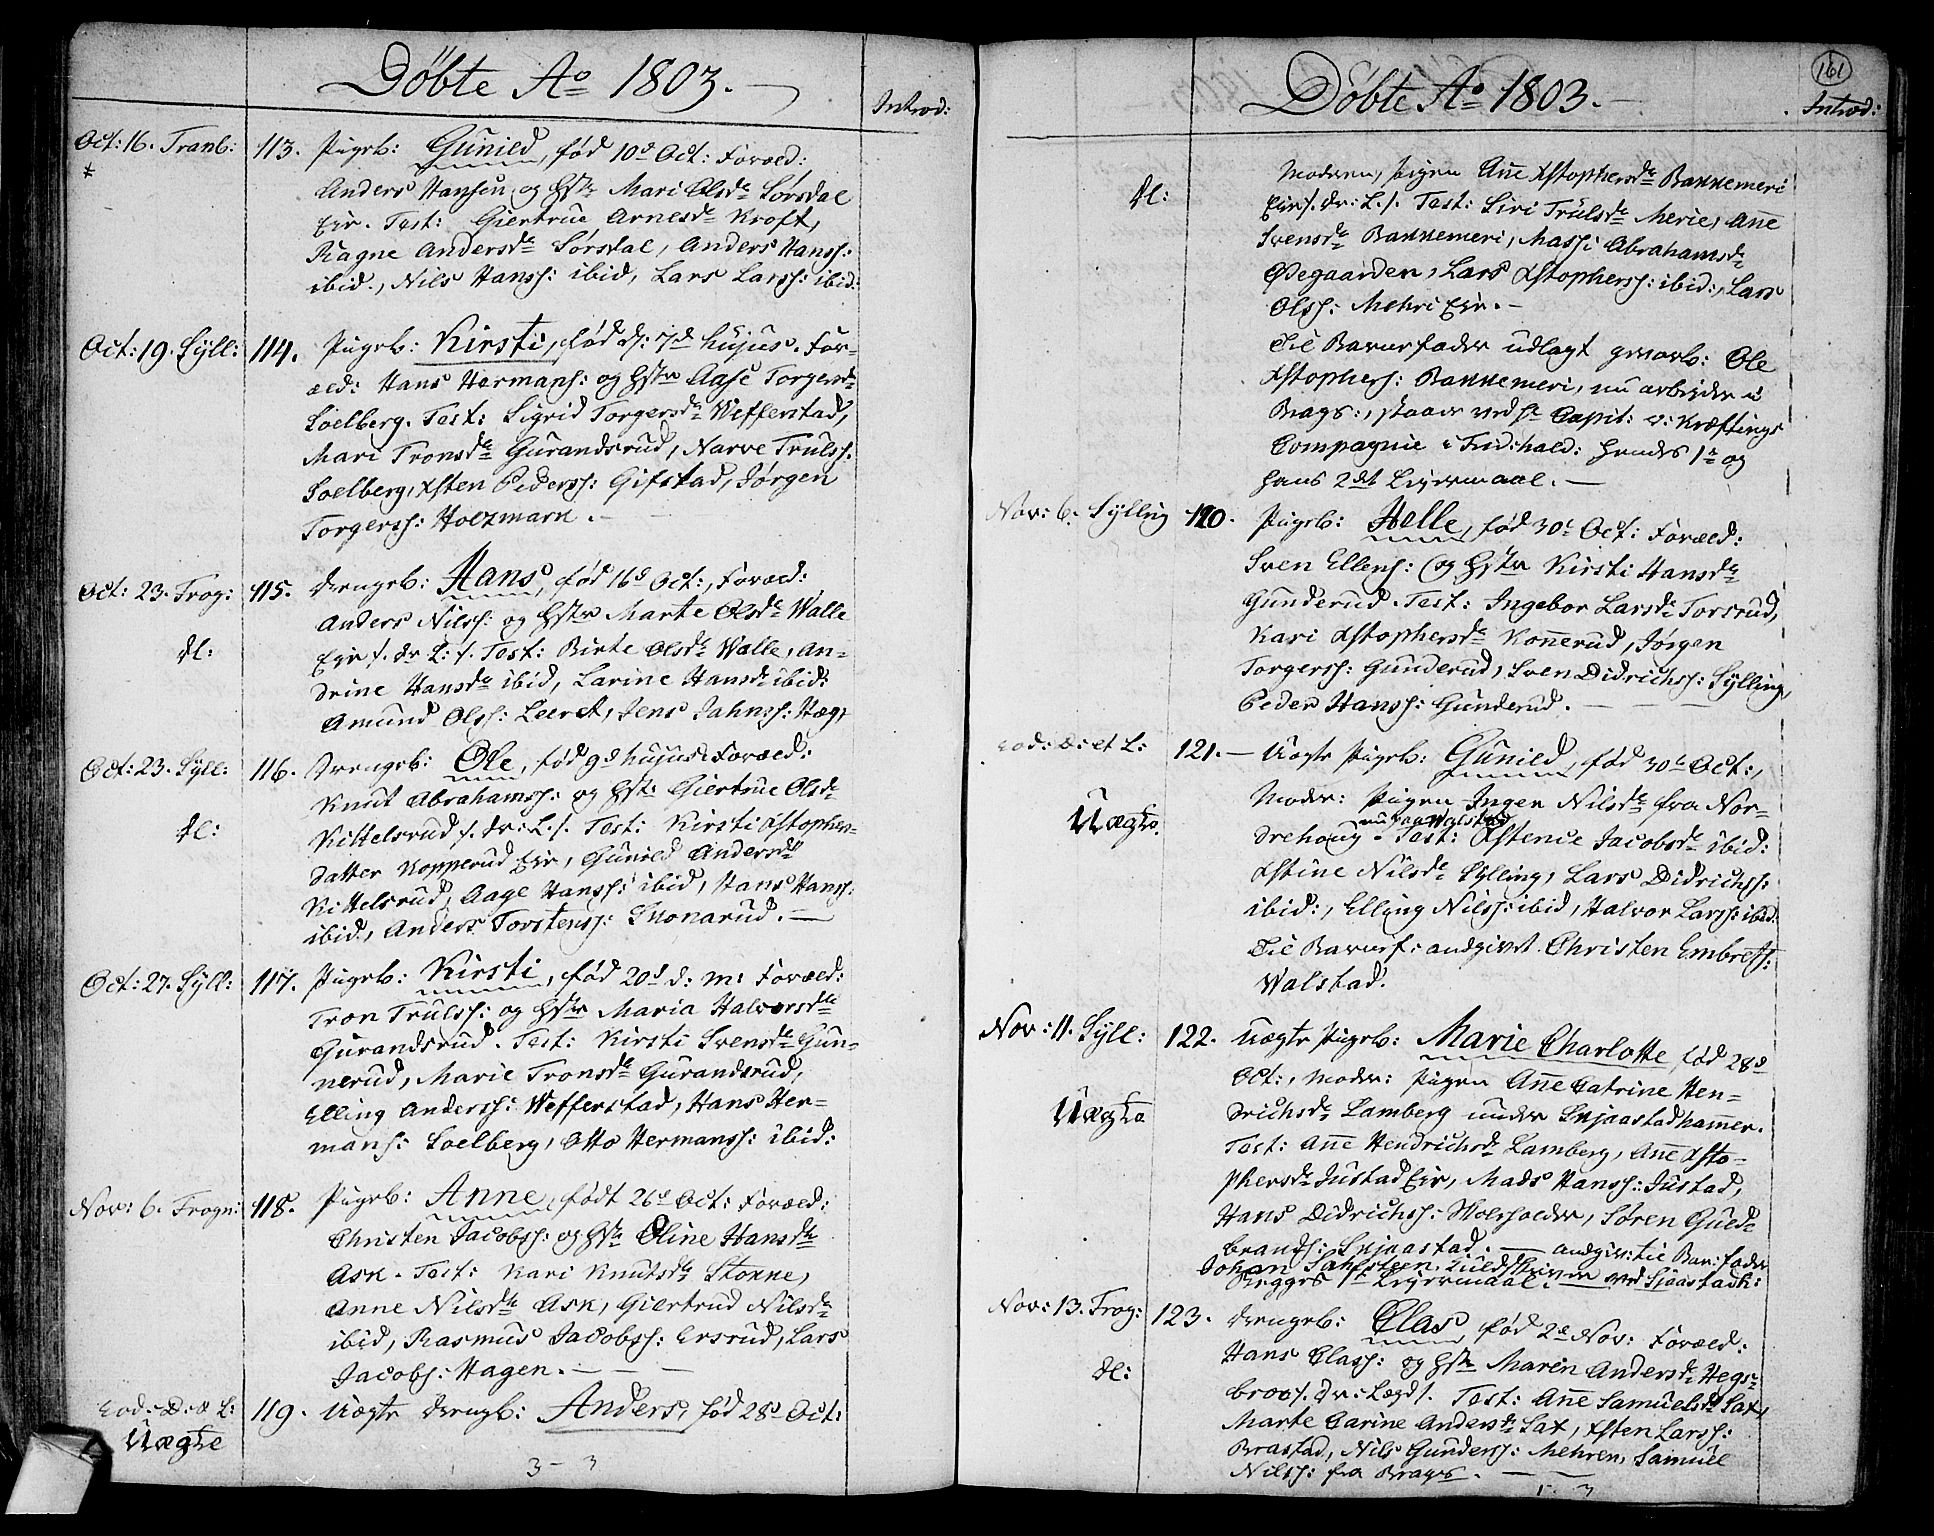 Döbte Ao 1803.
Introd:
Oct: 16. Tranb:
113. Pigeb: Gunild, fød 10de Oct: Foræld:
Anders Hansen og Hstr Mari Olsdr Sørsdal
Eir. Test: Giertrue Arnesdr Kroft,
Ragne Andersdr Sørsdal, Anders Hanss:
ibid., Nils Hanss: ibid, Lars Larss: ibid:
Oct: 19. Syll:
114. Pigeb: Kirsti, fød d: 7de hujus. For-
æld: Hans Hermanss: og Hstr Aase Torgersdr
Soelberg. Test: Sigrid Torgersdr Wefferstad,
Mari Tronsdr Gurandsrud, Narve Trulss:
Soelberg, Xsten Pederss: Gifstad, Jørgen
Torgerss: Holtzmark.
Oct: 23. Frog:
dl:
115. Drengeb: Hans, fød 16d Oct:, Foræld:
Anders Nilss: og Hstr Marte Olsdr Walle
Eir /. dr L: /. Test: Birte Olsdr Walle, An-
drine Hansdr ibid, Larine Hansdr ibid:
Amund Olss: Leeret, Jens Jahnss: Hæg
Oct: 23. Syll:
dl:
116. Drengeb: Ole, fød 9d hujus. Foræld:
Knut Abrahamss: og Hst: Giertrue Olsdr
Kittelsrud /. dr: L: /. Test: Kirsti Xstophers-
datter Kopperud Eir, Gunild Andersdr
Kittelsrud, Aage Hanss: ibid, Hans Hanss:
ibid, Anders Torstenss: Skonarud.
Oct: 27. Syll:
117. Pigeb: Kirsti, fød 20d d: m: Foræld:
Tron Trulss: og Hstr Maria Halvorsdr
Gurandsrud. Test: Kirsti Svensdr Gun-
nerud, Marie Tronsdr Gurandsrud,
Elling Anderss: Wefferstad, Hans Her-
manss: Soelberg, Otto Hermanss: ibid:
Nov: 6. Frogn:
118. Pigeb: Anne, født 26d Oct: Foræld:
Christen Jacobss: og Hstr Eline Hansdr
Ask. Test: Kari Knutsdr Stokke,
Anne Nilsdr Ask, Giertrud Nilsdr
ibid, Rasmus Jacobss: Ersrud, Lars
Jacobs: Hagen.
Eod: D: & L:
Uægte
119. Uægte Drengb: Anders, fød 28d Oct:
Döbte Ao 1803.
161
Introd:
dl:
Moderen, Pigen Añe Xstophersdr Bakkemeri
Eir /. dr: L. /. Test: Siri Trulsdr Merie, Añe
Svensdr Bakkemeri, Massi Abrahamsdr
Ødegaarden, Lars Xstopherss: ibid:, Lars
Olss: Mehri Eir.
Til Barnefader udlagt Ole
Xstopherss: Bakkemeri, nu arbeider i
Brags:, staaer ved Capit: v: Kræftings
Compagnie i Frid:hald: hendes 1te og
hans 2det Leiermaal.
Nov: 6. Sylling
120. Pigeb: Helle, fød 30t Oct: Foræld:
Sven Ellens: og Hstr Kirsti Hansdr
Gunderud. Test: Ingebor Larsdr Torsrud,
Kari Xstophersdr Koñerud, Jørgen
Torgerss: Gunderud, Sven Didrichss: Sylling,
Peder Hanss: Gunderud.
Eod: D: et L:
Uægte
121. Uægte Pigeb: Gunild, fød 30t Oct:,
Moder: Pigen Ingen Nilsdr fra Nor-
nu paa Walstad
drehoug - Test: Xstence Jacobsdr ibid:
Xstine Nilsdr Sylling, Lars Didrichss:
ibid:, Elling Nilss: ibid, Halvor Larss: ibid:
Til Barnef: andgivet Christen Embretss:
Walstad.
Nov: 11. Syll:
Uægte
122. Uægte Pigeb: Marie Charlotte, fød 28d
Oct:, Moder: Pigen Añe Catrine Hen-
drichsdr Lamberg under Snjaastadhamer.
Test: Añe Hendrichsdr Lamberg, Añe Xsto-
phersdr Justad Eir, Mads Hanss: Justad,
Hans Didrichss: Skolholder, Søren Guld-
brandss: Snjaastad. andgiv: til Bar: fader
Johan
Begges 1te Leiermaal.
Nov: 13. Frog:
dl:
123. Drengeb: Clas, fød 2d Nov: Foræld:
Hans Class: og Hstr Maren Andersdr Hegs-
broe /. Dr: Lægd /. Test: Añe Samuelsdr Sax,
Marte Carine Andersdr Sax, Xsten Larss:
Brastad, Nils Gunderss: Mehren, Samuel
Nilss: fra Brags.